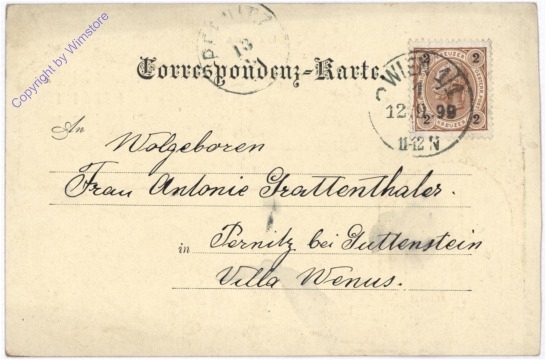 Copyright by Wimstore
PERNITZ
13
Correspondenz-Karte.
2 KREUZER 2
2 KREUZER 2
WIEN 1/1
1
12.9.99
11-12 N
An
Wolgeboren
Frau Antonie Grattenthaler.
in Pernitz bei Guttenstein
Villa Wenus.